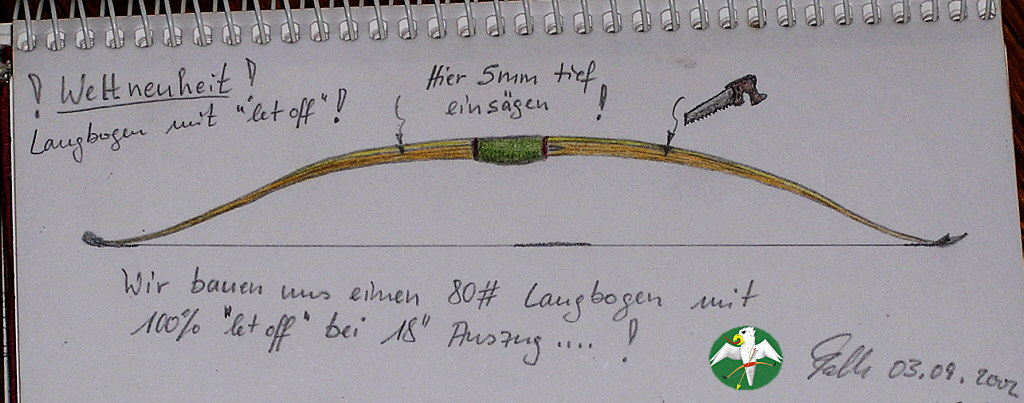 ! Weltneuheit !
Langbogen mit "let off" !
Hier 5mm tief
einsägen !
Wir bauen uns einen 80# Langbogen mit
100% "let off" bei 18" Auszug .... !
03.09.2002